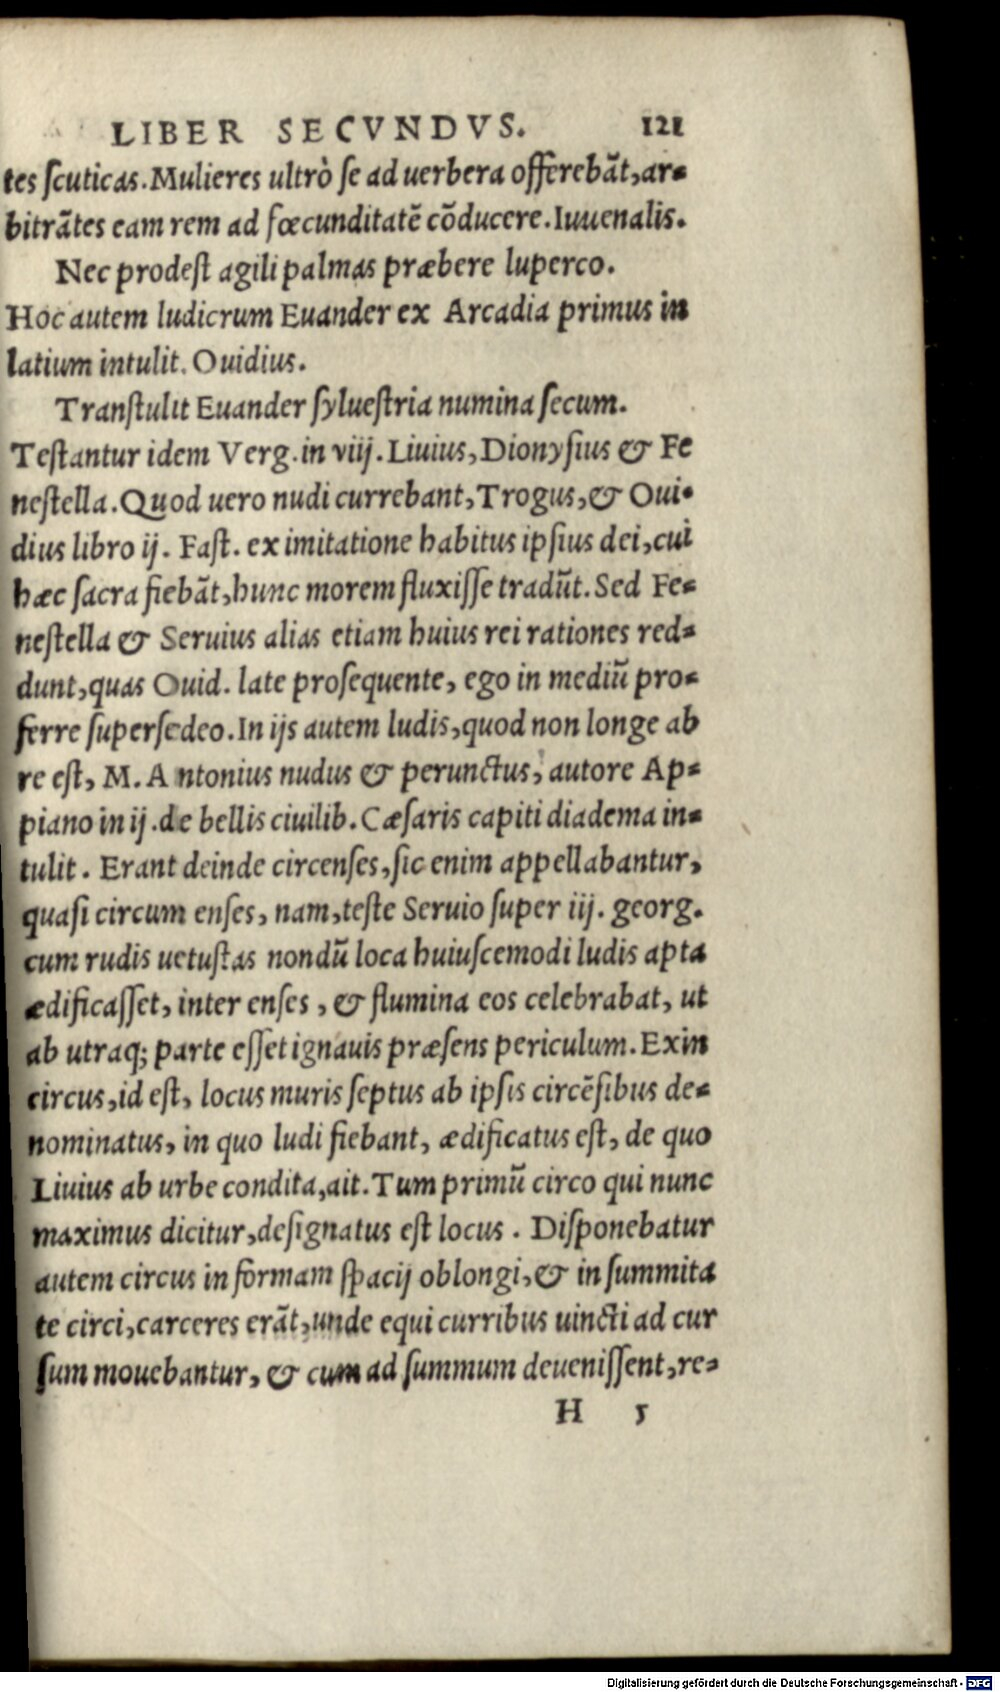 LIBER SECVNDVS. 121
tes ſcuticas. Mulieres ultrò ſe ad uerbera offerebãt, ar-
bitrãtes eam rem ad fœcunditatẽ cõducere. Iuuenalis.
Nec prodeſt agili palmas præbere luperco.
Hoc autem ludicrum Euander ex Arcadia primus in
latium intulit. Ouidius.
Tranſtulit Euander ſylueſtria numina ſecum.
Teſtantur idem Verg. in viij. Liuius, Dionyſius & Fe
neſtella. Quod uero nudi currebant, Trogus, & Oui-
dius libro ij. Faſt. ex imitatione habitus ipſius dei, cui
hæc ſacra fiebãt, hunc morem fluxiſſe tradũt. Sed Fe-
neſtella & Seruius alias etiam huius rei rationes red-
dunt, quas Ouid. late proſequente, ego in mediũ pro-
ferre ſuperſedeo. In ijs autem ludis, quod non longe ab
re eſt, M. Antonius nudus & perunctus, autore Ap-
piano in ij. de bellis ciuilib. Cæſaris capiti diadema in-
tulit. Erant deinde circenſes, ſic enim appellabantur,
quaſi circum enſes, nam, teſte Seruio ſuper iij. georg.
cum rudis uetuſtas nondũ loca huiuſcemodi ludis apta
ædificaſſet, inter enſes, & flumina eos celebrabat, ut
ab utraq; parte eſſet ignauis præſens periculum. Exin
circus, id eſt, locus muris ſeptus ab ipſis circẽſibus de-
nominatus, in quo ludi fiebant, ædificatus eſt, de quo
Liuius ab urbe condita, ait. Tum primũ circo qui nunc
maximus dicitur, deſignatus eſt locus. Diſponebatur
autem circus in formam ſpacij oblongi, & in ſummita
te circi, carceres erãt, unde equi curribus uincti ad cur
ſum mouebantur, & cum ad ſummum deueniſſent, re-
H 5
Digitalisierung gefördert durch die Deutsche Forschungsgemeinschaft - DFG